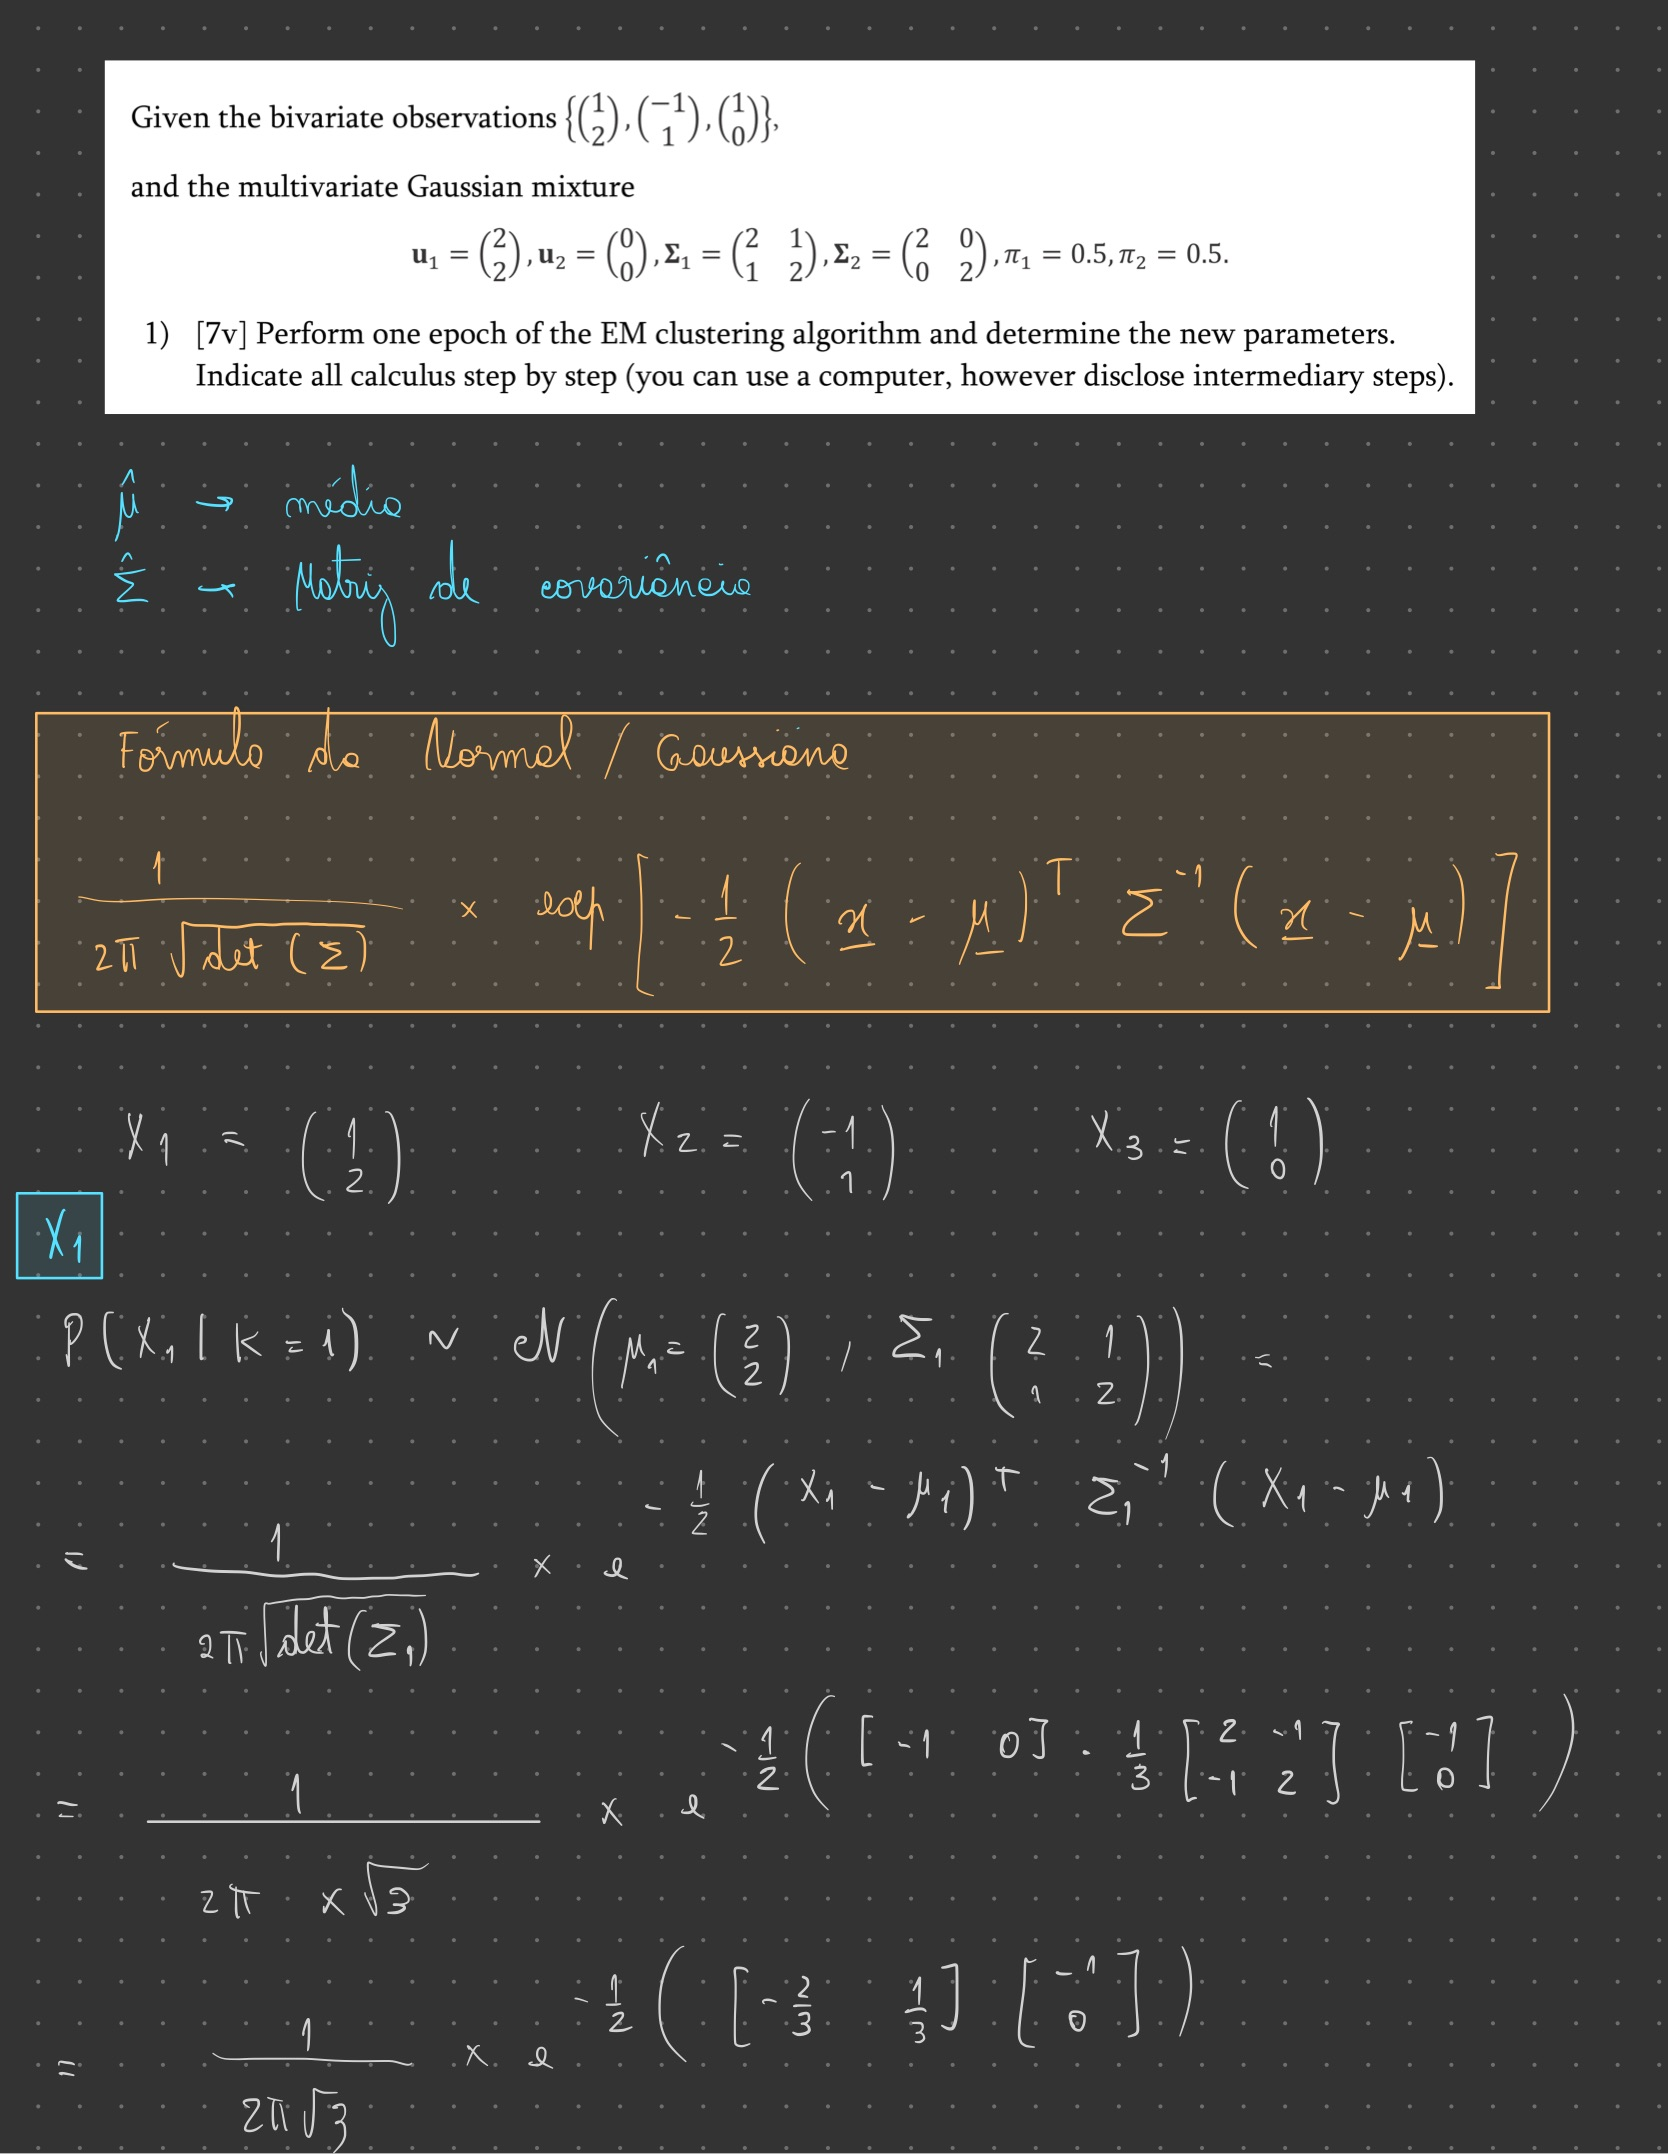 Given the bivariate observations {(1 2), (−1 1), (1 0)},
and the multivariate Gaussian mixture
u₁ = (2 2), u₂ = (0 0), Σ₁ = (2 1 1 2), Σ₂ = (2 0 0 2), π₁ = 0.5, π₂ = 0.5.
1) [7v] Perform one epoch of the EM clustering algorithm and determine the new parameters.
Indicate all calculus step by step (you can use a computer, however disclose intermediary steps).
μ̂ → média
Σ̂ → Matriz de covariância
Fórmula da Normal / Gaussiana
1 / (2π √det(Σ)) × exp [ -1/2 (x - μ)ᵀ Σ⁻¹ (x - μ) ]
X₁ = (1 2) X₂ = (-1 1) X₃ = (1 0)
X₁
P(X₁ | K = 1) ~ N(μ₁ = (2 2), Σ₁ (2 1 1 2)) =
= 1 / (2π √det(Σ₁)) × e^( -1/2 (X₁ - μ₁)ᵀ Σ₁⁻¹ (X₁ - μ₁) )
= 1 / (2π × √3) × e^( -1/2 ( [-1 0] · 1/3 [2 -1 -1 2] [-1 0] ) )
= 1 / (2π√3) × e^( -1/2 ( [-2/3 1/3] [-1 0] ) )